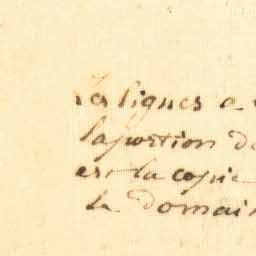 Les lignes a
la portion de
est la copie
le domai